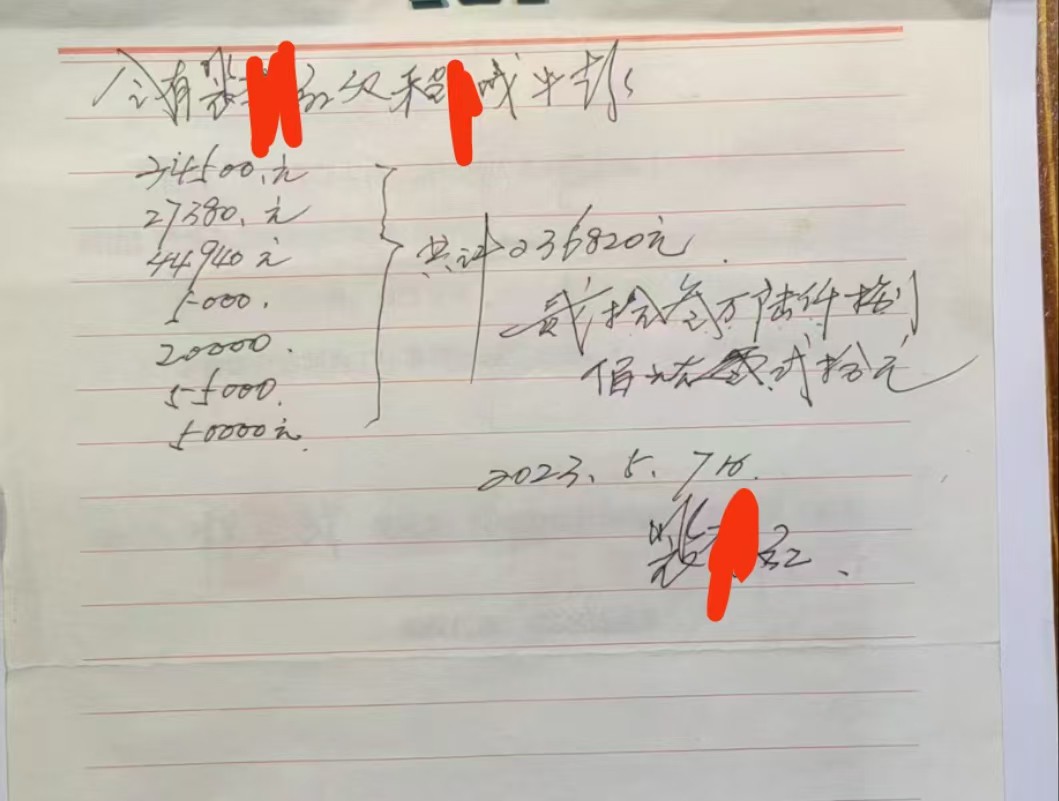 今有裴 红欠 牛款
34500.元
27380.元
44940元
5000.
20000.
55000.
50000元.
共计236820元.
贰拾叁万陆仟捌
佰 贰拾元
2023.5.7日.
裴 红